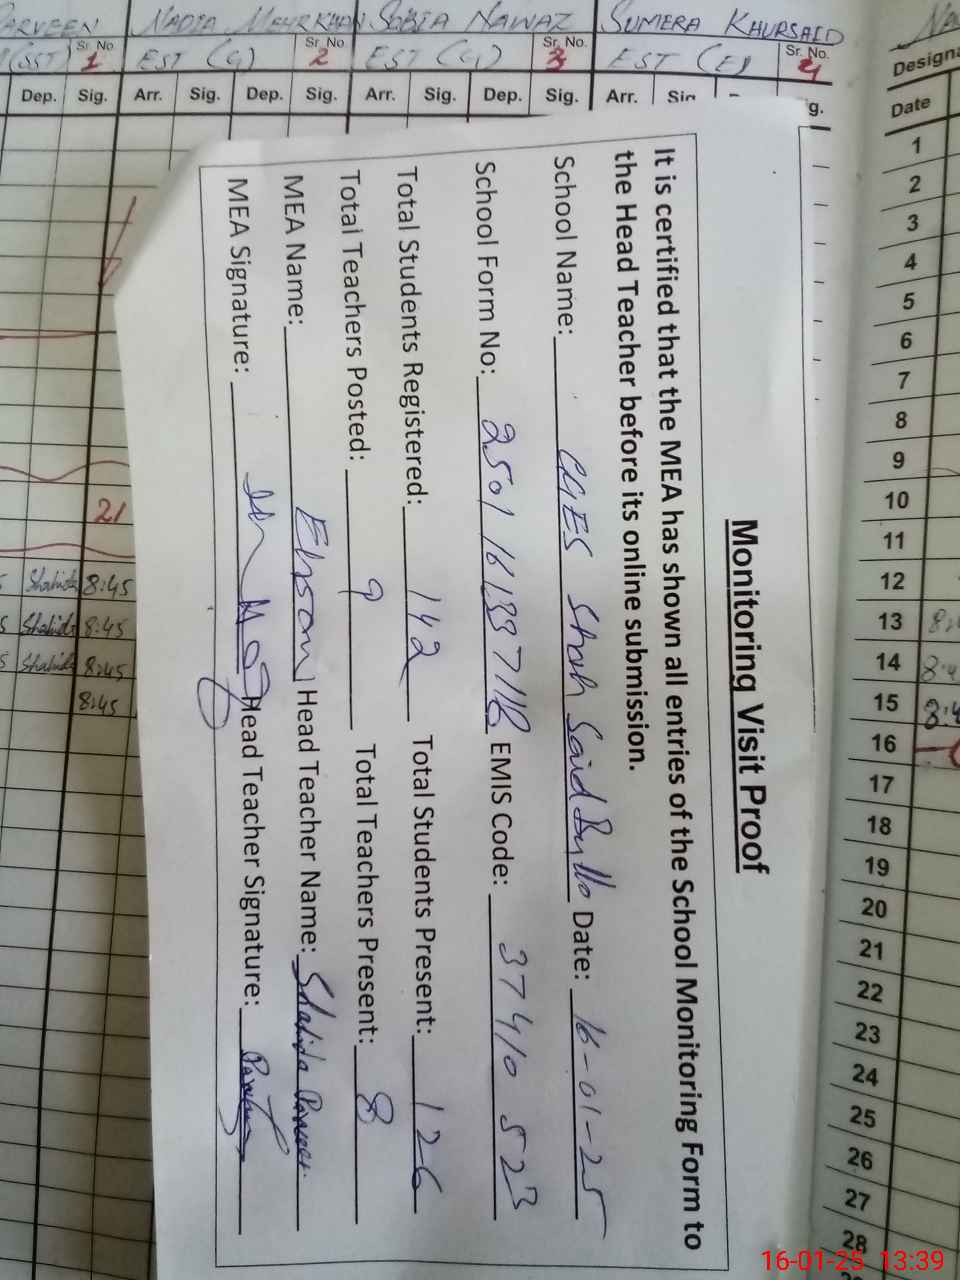 PARVEEN NADIA MEHRKHAN SOBIA NAWAZ SUMERA KHURSAID
(SST) Sr. No. 1 EST (G) Sr. No. 2 EST (G) Sr. No. 3 EST (E) Sr. No. 4
Dep. Sig. Arr. Sig. Dep. Sig. Arr. Sig. Dep. Sig. Arr.
Monitoring Visit Proof
It is certified that the MEA has shown all entries of the School Monitoring Form to
the Head Teacher before its online submission.
School Name: GGES Shah Said Bullo Date: 16-01-25
School Form No: EMIS Code: 37410 523
Total Students Registered: 142 Total Students Present: 126
Total Teachers Posted: 9 Total Teachers Present: 8
MEA Name: Head Teacher Name: Shahida Parveen
MEA Signature: Head Teacher Signature:
21
Shahida 8:45
Shahida 8:45
Shahida 8:45
8:45
Date
1
2
3
4
5
6
7
8
9
10
11
12
13
14
15
16
17
18
19
20
21
22
23
24
25
26
27
28
16-01-25 13:39